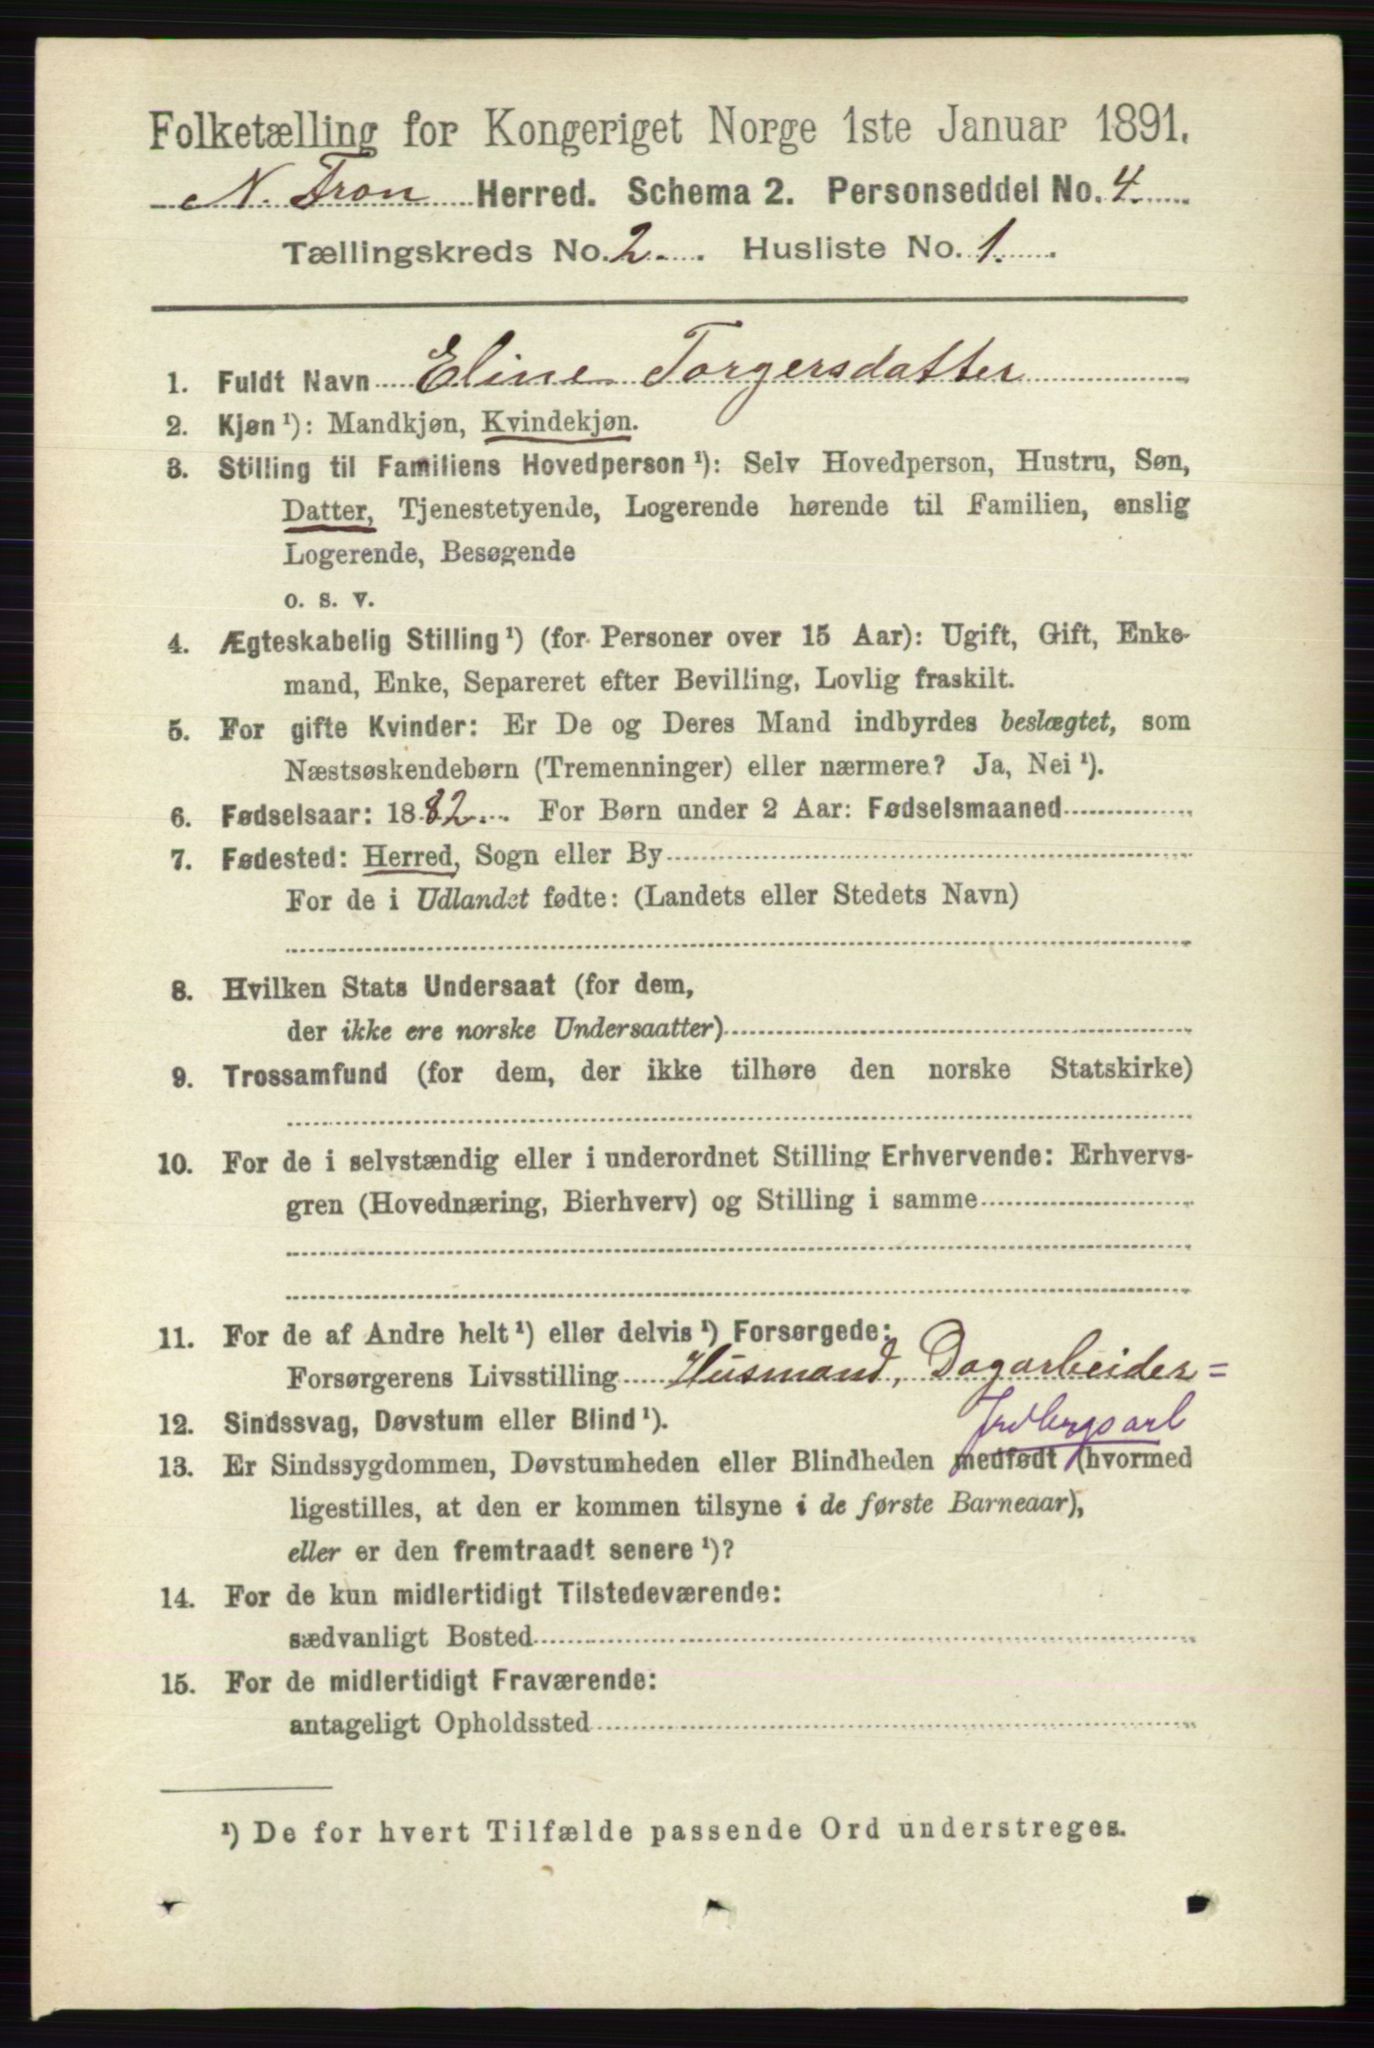 Folketælling for Kongeriget Norge 1ste Januar 1891.
N. Fron Herred. Schema 2. Personseddel No. 4
Tællingskreds No. 2. Husliste No. 1.
1. Fuldt Navn Eline Torgersdatter
2. Kjøn ¹): Mandkjøn, Kvindekjøn.
3. Stilling til Familiens Hovedperson ¹): Selv Hovedperson, Hustru, Søn,
Datter, Tjenestetyende, Logerende hørende til Familien, enslig
Logerende, Besøgende
o. s. v.
4. Ægteskabelig Stilling ¹) (for Personer over 15 Aar): Ugift, Gift, Enke-
mand, Enke, Separeret efter Bevilling, Lovlig fraskilt.
5. For gifte Kvinder: Er De og Deres Mand indbyrdes beslægtet, som
Næstsøskendebørn (Tremenninger) eller nærmere? Ja, Nei ¹).
6. Fødselsaar: 1882. For Børn under 2 Aar: Fødselsmaaned
7. Fødested: Herred, Sogn eller By
For de i Udlandet fødte: (Landets eller Stedets Navn)
8. Hvilken Stats Undersaat (for dem,
der ikke ere norske Undersaatter)
9. Trossamfund (for dem, der ikke tilhøre den norske Statskirke)
10. For de i selvstændig eller i underordnet Stilling Erhvervende: Erhvervs-
gren (Hovednæring, Bierhverv) og Stilling i samme
11. For de af Andre helt ¹) eller delvis ¹) Forsørgede:
Forsørgerens Livsstilling Husmand, Dagarbeider=
Jrdbrgsarb
12. Sindssvag, Døvstum eller Blind ¹).
13. Er Sindssygdommen, Døvstumheden eller Blindheden medfødt (hvormed
ligestilles, at den er kommen tilsyne i de første Barneaar),
eller er den fremtraadt senere ¹)?
14. For de kun midlertidigt Tilstedeværende:
sædvanligt Bosted
15. For de midlertidigt Fraværende:
antageligt Opholdssted
¹) De for hvert Tilfælde passende Ord understreges.